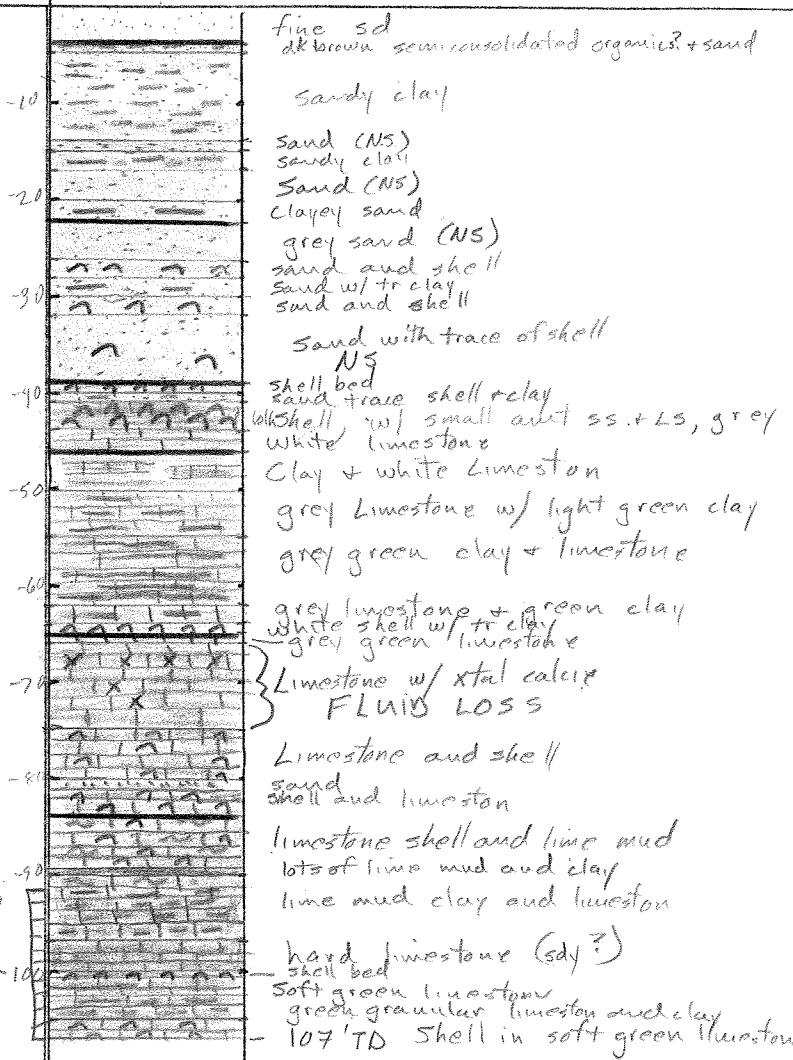 fine sd
dk brown semiconsolidated organics? + sand
-10
sandy clay
sand (NS)
sandy clay
Sand (NS)
-20
clayey sand
grey sand (NS)
sand and shell
sand w/ tr clay
-30
sand and shell
Sand with trace of shell
NS
shell bed
-40
sand trace shell + clay
Shell, w/ small amt ss. + LS, grey
white limestone
Clay + white Limeston
-50
grey Limestone w/ light green clay
grey green clay + limestone
-60
grey limestone + green clay
white shell w/ tr clay
grey green limestone
-70
Limestone w/ xtal calcite
FLUID LOSS
Limestone and shell
-80
sand
shell and limeston
limestone shell and lime mud
lots of lime mud and clay
-90
lime mud clay and limeston
hard limestone (sdy?)
-100
shell bed
Soft green limestone
green granular limeston and clay
107' TD Shell in soft green limeston